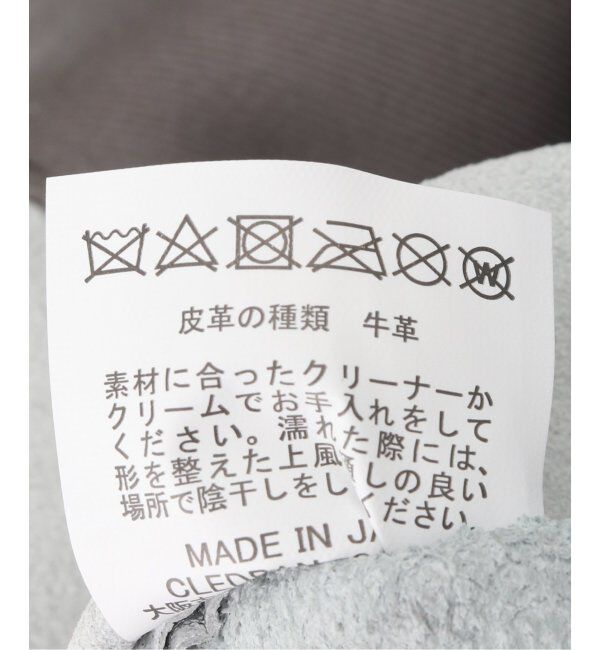 W
皮革の種類 牛革
素材に合ったクリーナーか
クリームでお手入れをして
ください。濡れた際には、
形を整えた上風しの良い
場所で陰干しをしください
MADE IN